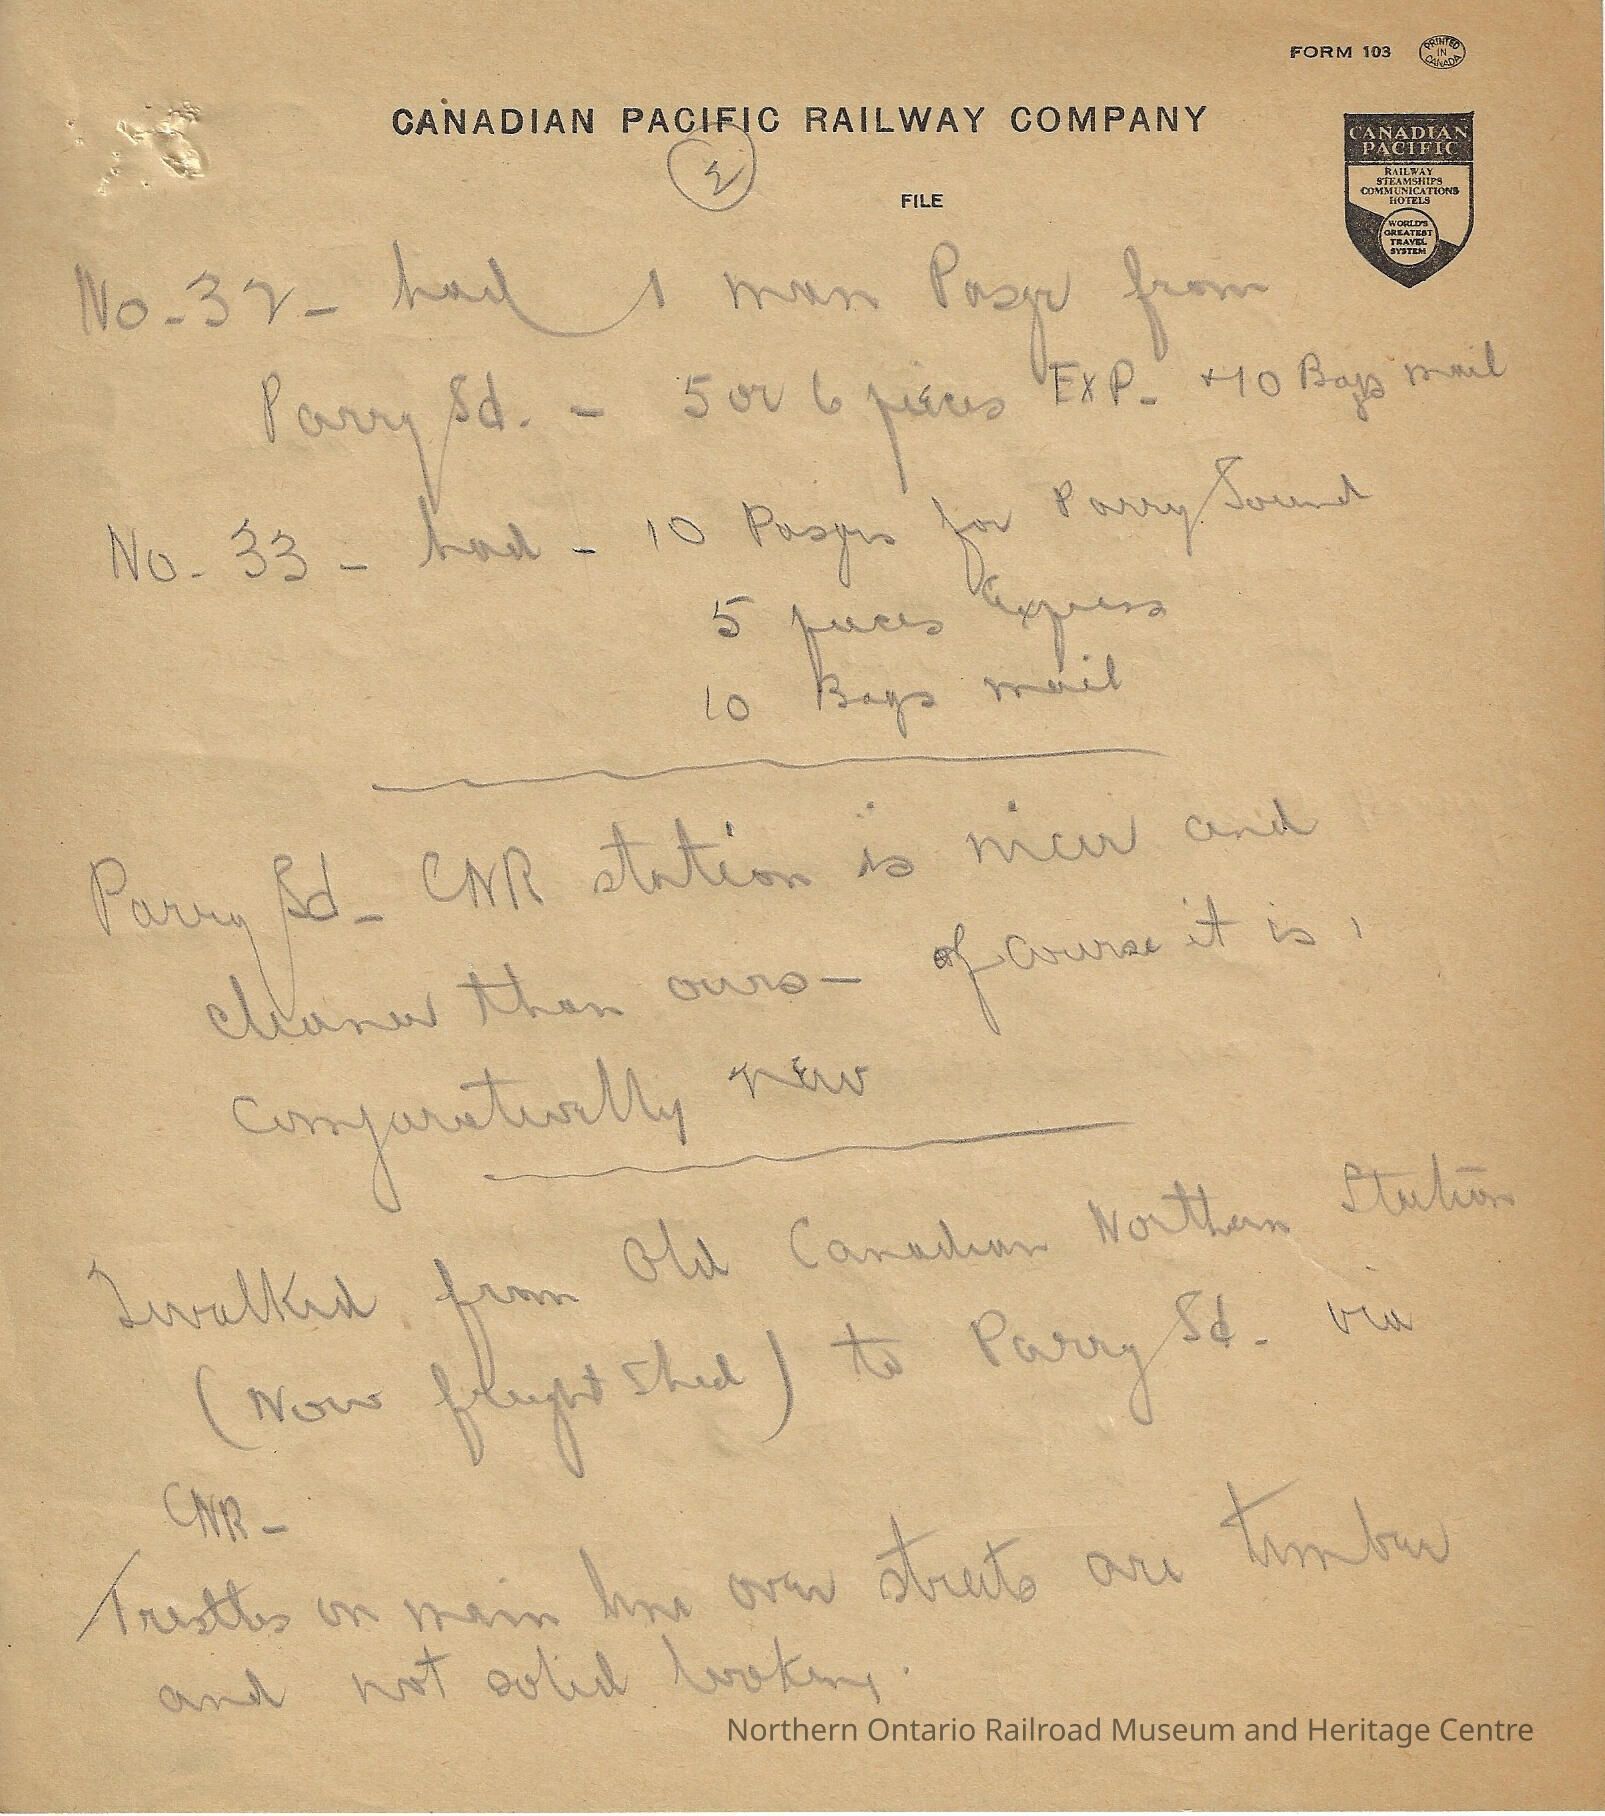 FORM 103
PRINTED IN CANADA
CANADIAN PACIFIC RAILWAY COMPANY
2
FILE
CANADIAN
PACIFIC
RAILWAY
STEAMSHIPS
COMMUNICATIONS
HOTELS
WORLD'S
GREATEST
TRAVEL
SYSTEM
No - 32 - had 1 man Pasgr from
Parry Sd. - 5 or 6 pieces EXP - +10 Bags mail
No - 33 - had - 10 Pasgrs for Parry Sound
5 pieces Express
10 Bags mail
Parry Sd - CNR station is nicer and
cleaner than ours - of course it is,
comparativelly new
I walked from Old Canadian Northern Station
(Now freight Shed) to Parry Sd - via
CNR -
Trestles on main line over streets are timber
and not solid looking.
Northern Ontario Railroad Museum and Heritage Centre